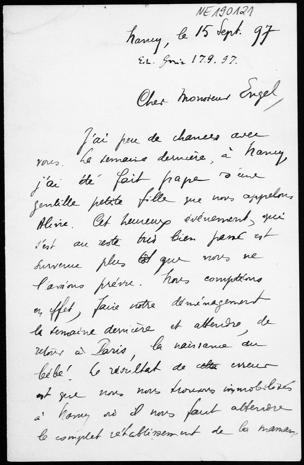 NE190121
Nancy, le 15 Sept. 97
17.9.97.
Cher Monsieur Engel,
J'ai peu de chances avec
vous. La semaine dernière, à Nancy,
j'ai été fait papa d'une
gentille petite fille que nous appelons
Aline. Cet heureux événement, qui
s'est au reste très bien passé est
survenu plus tôt que nous ne
l'avions prévu. Nous comptions
en effet, faire notre déménagement
la semaine dernière et attendre, de
retour à Paris, la naissance du
bébé! Le résultat de cette erreur
est que nous nous trouvons immobilisés
à Nancy où il nous faut attendre
le complet rétablissement de la maman,